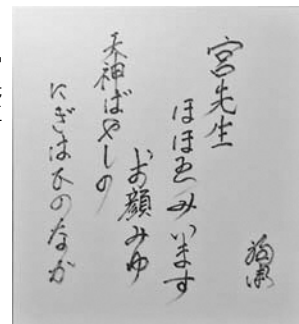 宮先生
ほほゑみいます
お顔みゆ
天神ばやしの
にぎはひのなか